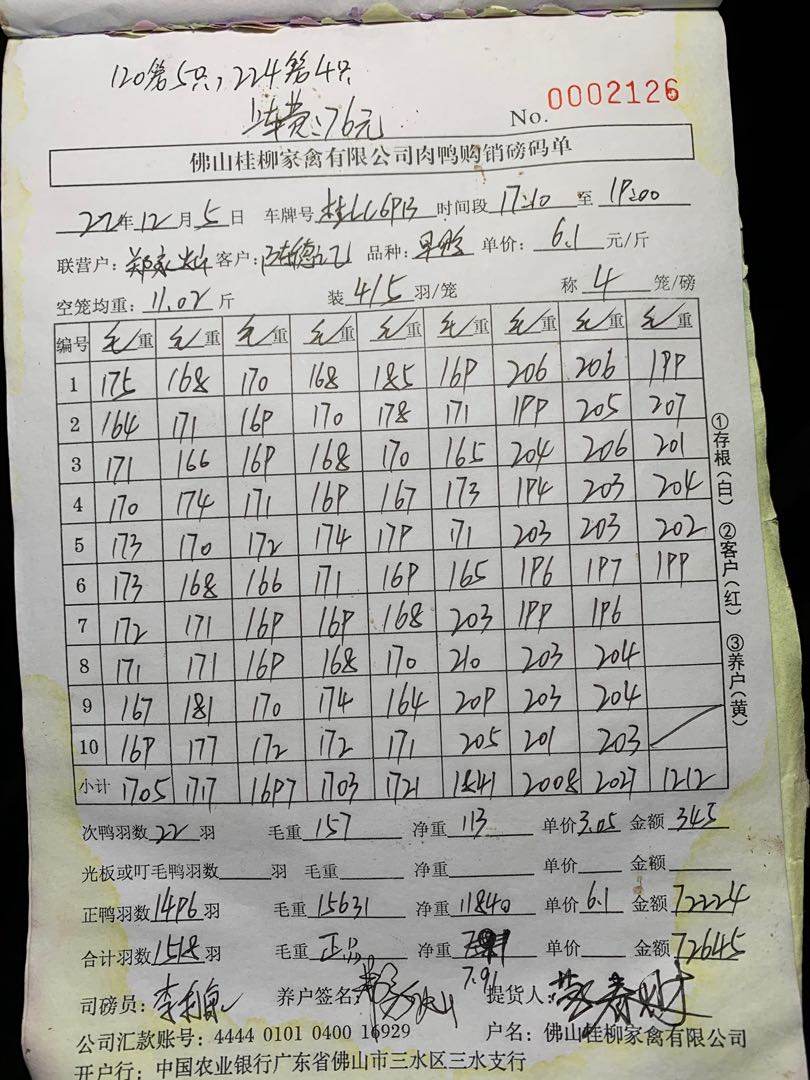 120第5只,224第4只
上车费:76元
No. 0002126
佛山桂柳家禽有限公司肉鸭购销磅码单
22年12月5日 车牌号 时间段17:10至19:00
联营户: 客户: 品种: 单价:6.1元/斤
空笼均重:11.02斤 装4/5羽/笼 称4笼/磅
编号 毛重 毛重 毛重 毛重 毛重 毛重 毛重 毛重 毛重
1 175 168 170 168 185 169 206 206 199
2 164 171 169 170 178 171 199 205 207
3 171 166 169 168 170 165 204 206 201
4 170 174 171 169 167 173 194 203 204
5 173 170 172 174 179 171 203 203 202
6 173 168 166 171 169 165 196 197 199
7 172 171 169 169 168 203 199 196
8 171 171 169 168 170 210 203 204
9 167 181 170 174 164 209 203 204
10 169 177 172 172 171 205 201 203
小计 1705 1717 1697 1703 1721 1841 2008 2027 1212
①存根(白) ②客户(红) ③养户(黄)
次鸭羽数22羽 毛重157 净重113 单价3.05 金额345
光板或叮毛鸭羽数 羽 毛重 净重 单价 金额
正鸭羽数1496羽 毛重15631 净重11840 单价6.1 金额72224
合计羽数1518羽 毛重正品 净重 单价 金额72645
7.91
司磅员: 养户签名: 提货人:
公司汇款账号:4444 0101 0400 16929 户名:佛山桂柳家禽有限公司
开户行:中国农业银行广东省佛山市三水区三水支行